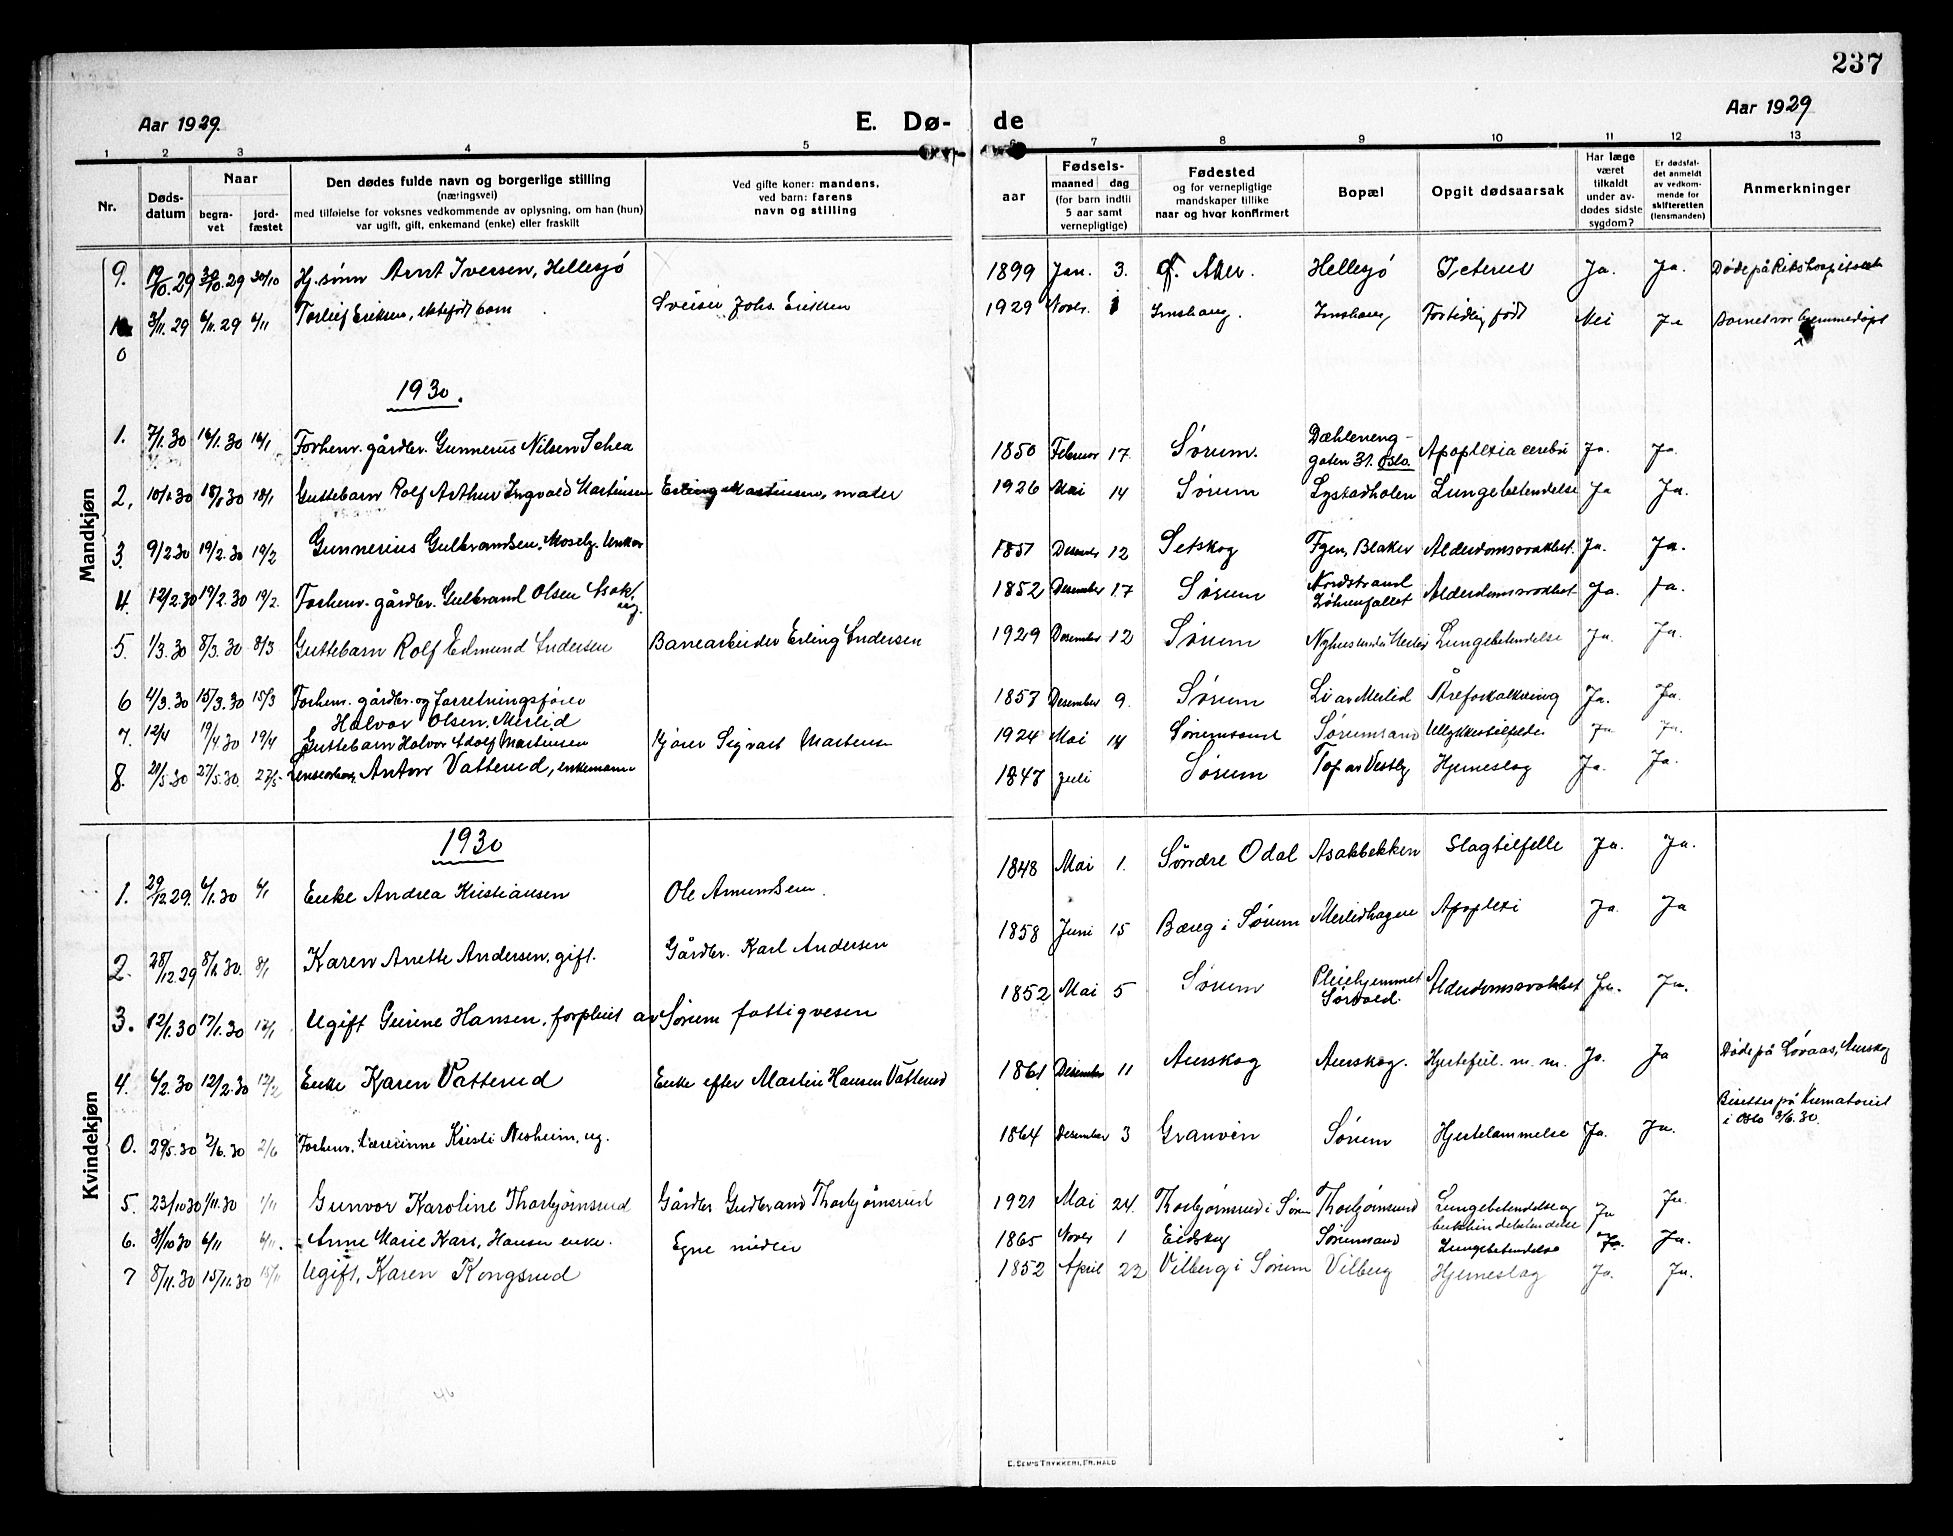 237
Aar 1929.
E. Dø-
de
Aar 1929
1 2 3 4 5 6 7 8 9 10 11 12 13
Nr.
Døds-
datum
Naar
begra-
vet
jord-
fæstet
Den dødes fulde navn og borgerlige stilling
(næringsvei)
med tilføielse for voksnes vedkommende av oplysning, om han (hun)
var ugift, gift, enkemand (enke) eller fraskilt
Ved gifte koner: mandens,
ved barn: farens
navn og stilling
aar
Fødsels-
maaned dag
(for barn indtil
5 aar samt
vernepligtige)
Fødested
og for vernepligtige
mandskaper tillike
naar og hvor konfirmert
Bopæl
Opgit dødsaarsak
Har læge
været
tilkaldt
under av-
dødes sidste
sygdom?
Er dødsfal-
det anmeldt
av vedkom-
mende for
skifteretten
(lensmanden)
Anmerkninger
Mandkjøn
9. 19/10.29 30/10.29 30/10 Hj. sønn Arnt Iversen, Hellesjö 1899 Jan. 3. Aker. Hellesjö Icterus Ja. Ja. Døde på Rikshospitalet
10 3/11.29 6/11.29 6/11 Torleif Eriksen, ektefödt barn Sveiser Johs. Eriksen 1929 Novbr. 1 Imshaug. Imshaug Fortidlig född Nei Ja Barnet var hjemmedøpt
1930.
1. 7/1.30 16/1.30 16/1 Forhenv. gårdbr. Gunnerius Nilsen Schea 1850 Februar 17. Sørum. Dæhleneng-
gaten 31. Oslo. Apoplexia cerebri Ja. Ja.
2. 10/1.30 18/1.30 18/1 Guttebarn Rolf Arthur Ingvald Martinsen Erling Martinsen, maler 1926 Mai 14 Sørum Lystadholen Lungebetendelse Ja Ja.
3. 9/2.30 19/2.30 19/2 Gunnerius Gulbrandsen, Moselz. Unkar 1851 Desember 12 Setskog Fgen, Blaker Alderdomssvakhet. Ja. Ja.
4. 12/2.30 19/2.30 19/2. Forhenv. gårdbr. Gulbrand Olsen Asak, ug. 1852 Desember 17 Sørum Nordstrand
Løhrenfallet Alderdomssvakhet Ja. Ja.
5. 1/3.30 8/3.30 8/3 Guttebarn Rolf Edmund Andersen Banearbeider Erling Andersen 1929 Desember 12 Sørum Nyhus under Merlid Lungebetendelse Ja. Ja.
6 4/3.30 15/3.30 15/3 Forhenv. gårdbr. og forretningsfører
Halvor Olsen Merlid 1857 Desember 9. Sørum Li av Merlid Åreforkalkning Ja. Ja.
7. 12/4 19/4.30 19/4 Guttebarn Halvor Adolf Martinsen Kjører Sigvart Martinsen 1924 Mai 14 Sørumsand Sørumsand Ulykkestilfelde Ja Ja.
8. 20/5.30 27/5.30. 27/5 Anton Vatterud, enkemann 1847 Juli Sørum Tof av Vestby Hjerneslag Ja. Ja.
Kvindekjøn
1930
1. 29/12.29. 6/1.30 6/1 Enke Andrea Kristiansen Ole Amundsen. 1848 Mai 1. Søndre Odal Asakbekken Slagtilfelle Ja. Ja.
2. 28/12.29 8/1.30. 8/1 Karen Anette Andersen, gift. Gårdbr. Karl Andersen 1858 Juni 15 Bæreg i Sørum Merlidhagen Apoplexi Ja. Ja
3. 12/1.30 17/1.30 17/1 Ugift Gurine Hansen, forpleiet av Sørum fattigvesen 1852 Mai 5 Sørum Pleiehjemmet
Sørvald. Alderdomssvakhet Ja. Ja.
4. 6/2.30 12/2.30 12/2 Enke Karen Vatterud Enke efter Martin Hansen Vatterud 1861 Desember 11 Aurskog Aurskog. Hjertefeil. m. m. Ja. Ja Døde på Lövaas, Aurskog
0. 29/5.30 2/6.30 2/6 Forhenv. lærerinne Kristi Nesheim, ug. 1864 Desember 3 Granvin Sørum Hjertelammelse Ja. Ja. Bisettes på Krematoriet
i Oslo 3/6.30.
5. 23/10.30 1/11.30 1/11 Gunvor Karoline Thorbjørnsrud Gårdbr Gudbrand Thorbjørnsrud 1921 Mai 24. Thorbjørnsrud i Sørum Thorbjørnsrud Lungebetendelse og
bukhindebetendelse Ja Ja.
6. 31/10.30 6/11 6/11. Anne Marie Kars. Hansen enke. Egne midler 1865 Novbr 1 Eidskog Sørumsand Lungebetendelse Ja. Ja.
7 8/11.30 15/11.30 15/11 Ugift, Karen Kongsrud 1852 April 22 Vilberg i Sørum Vilberg Hjerneslag Ja. Ja.
E. SEM'S TRYKKERI, FR.HALD